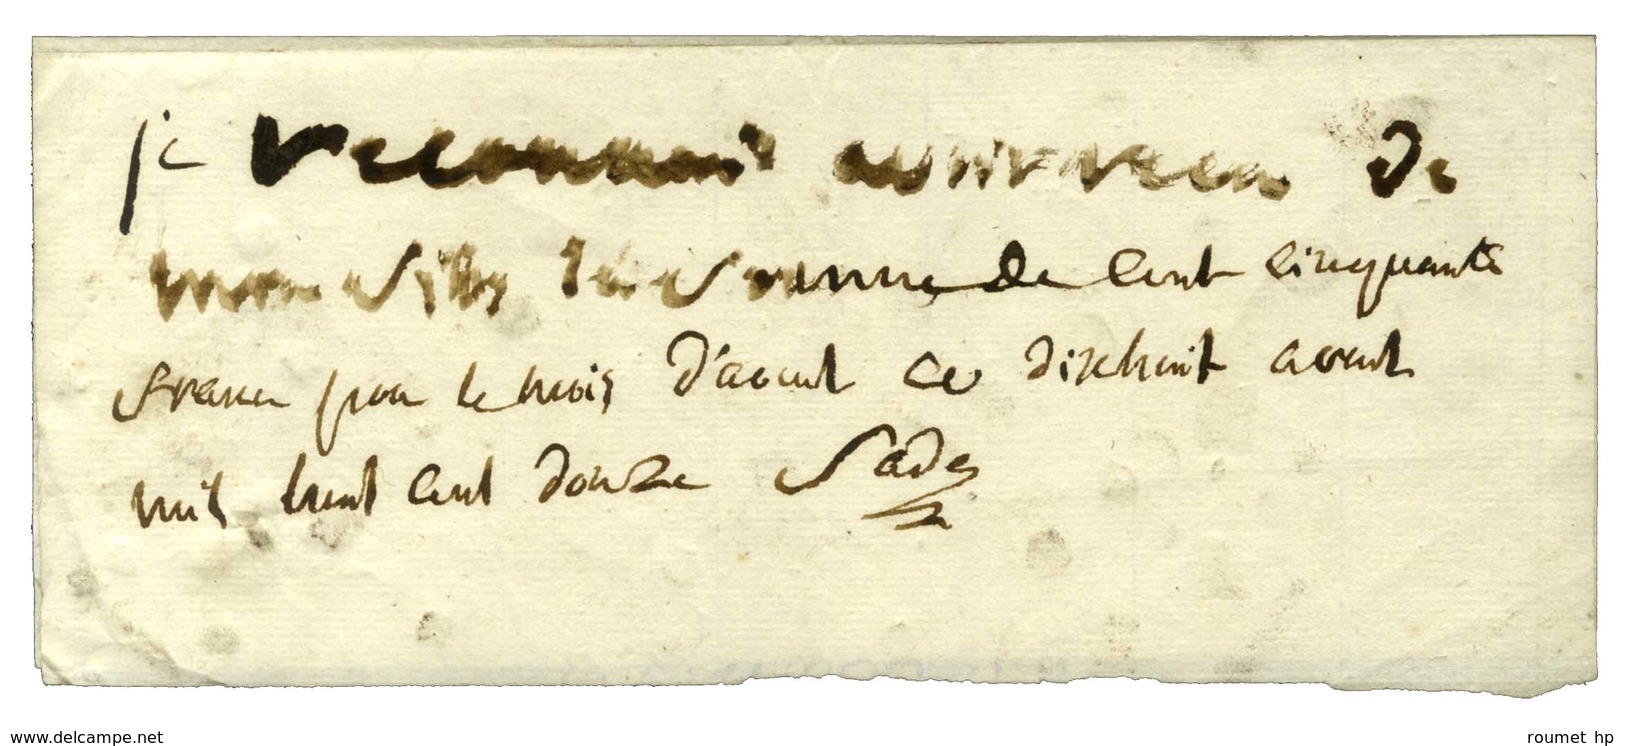 je reconnais avoir recu de
mon fils la somme de cent cinquante
francs pour le mois d'aoust ce dixhuit aoust
mil huit cent douze Sade
www.delcampe.net
roumet hp